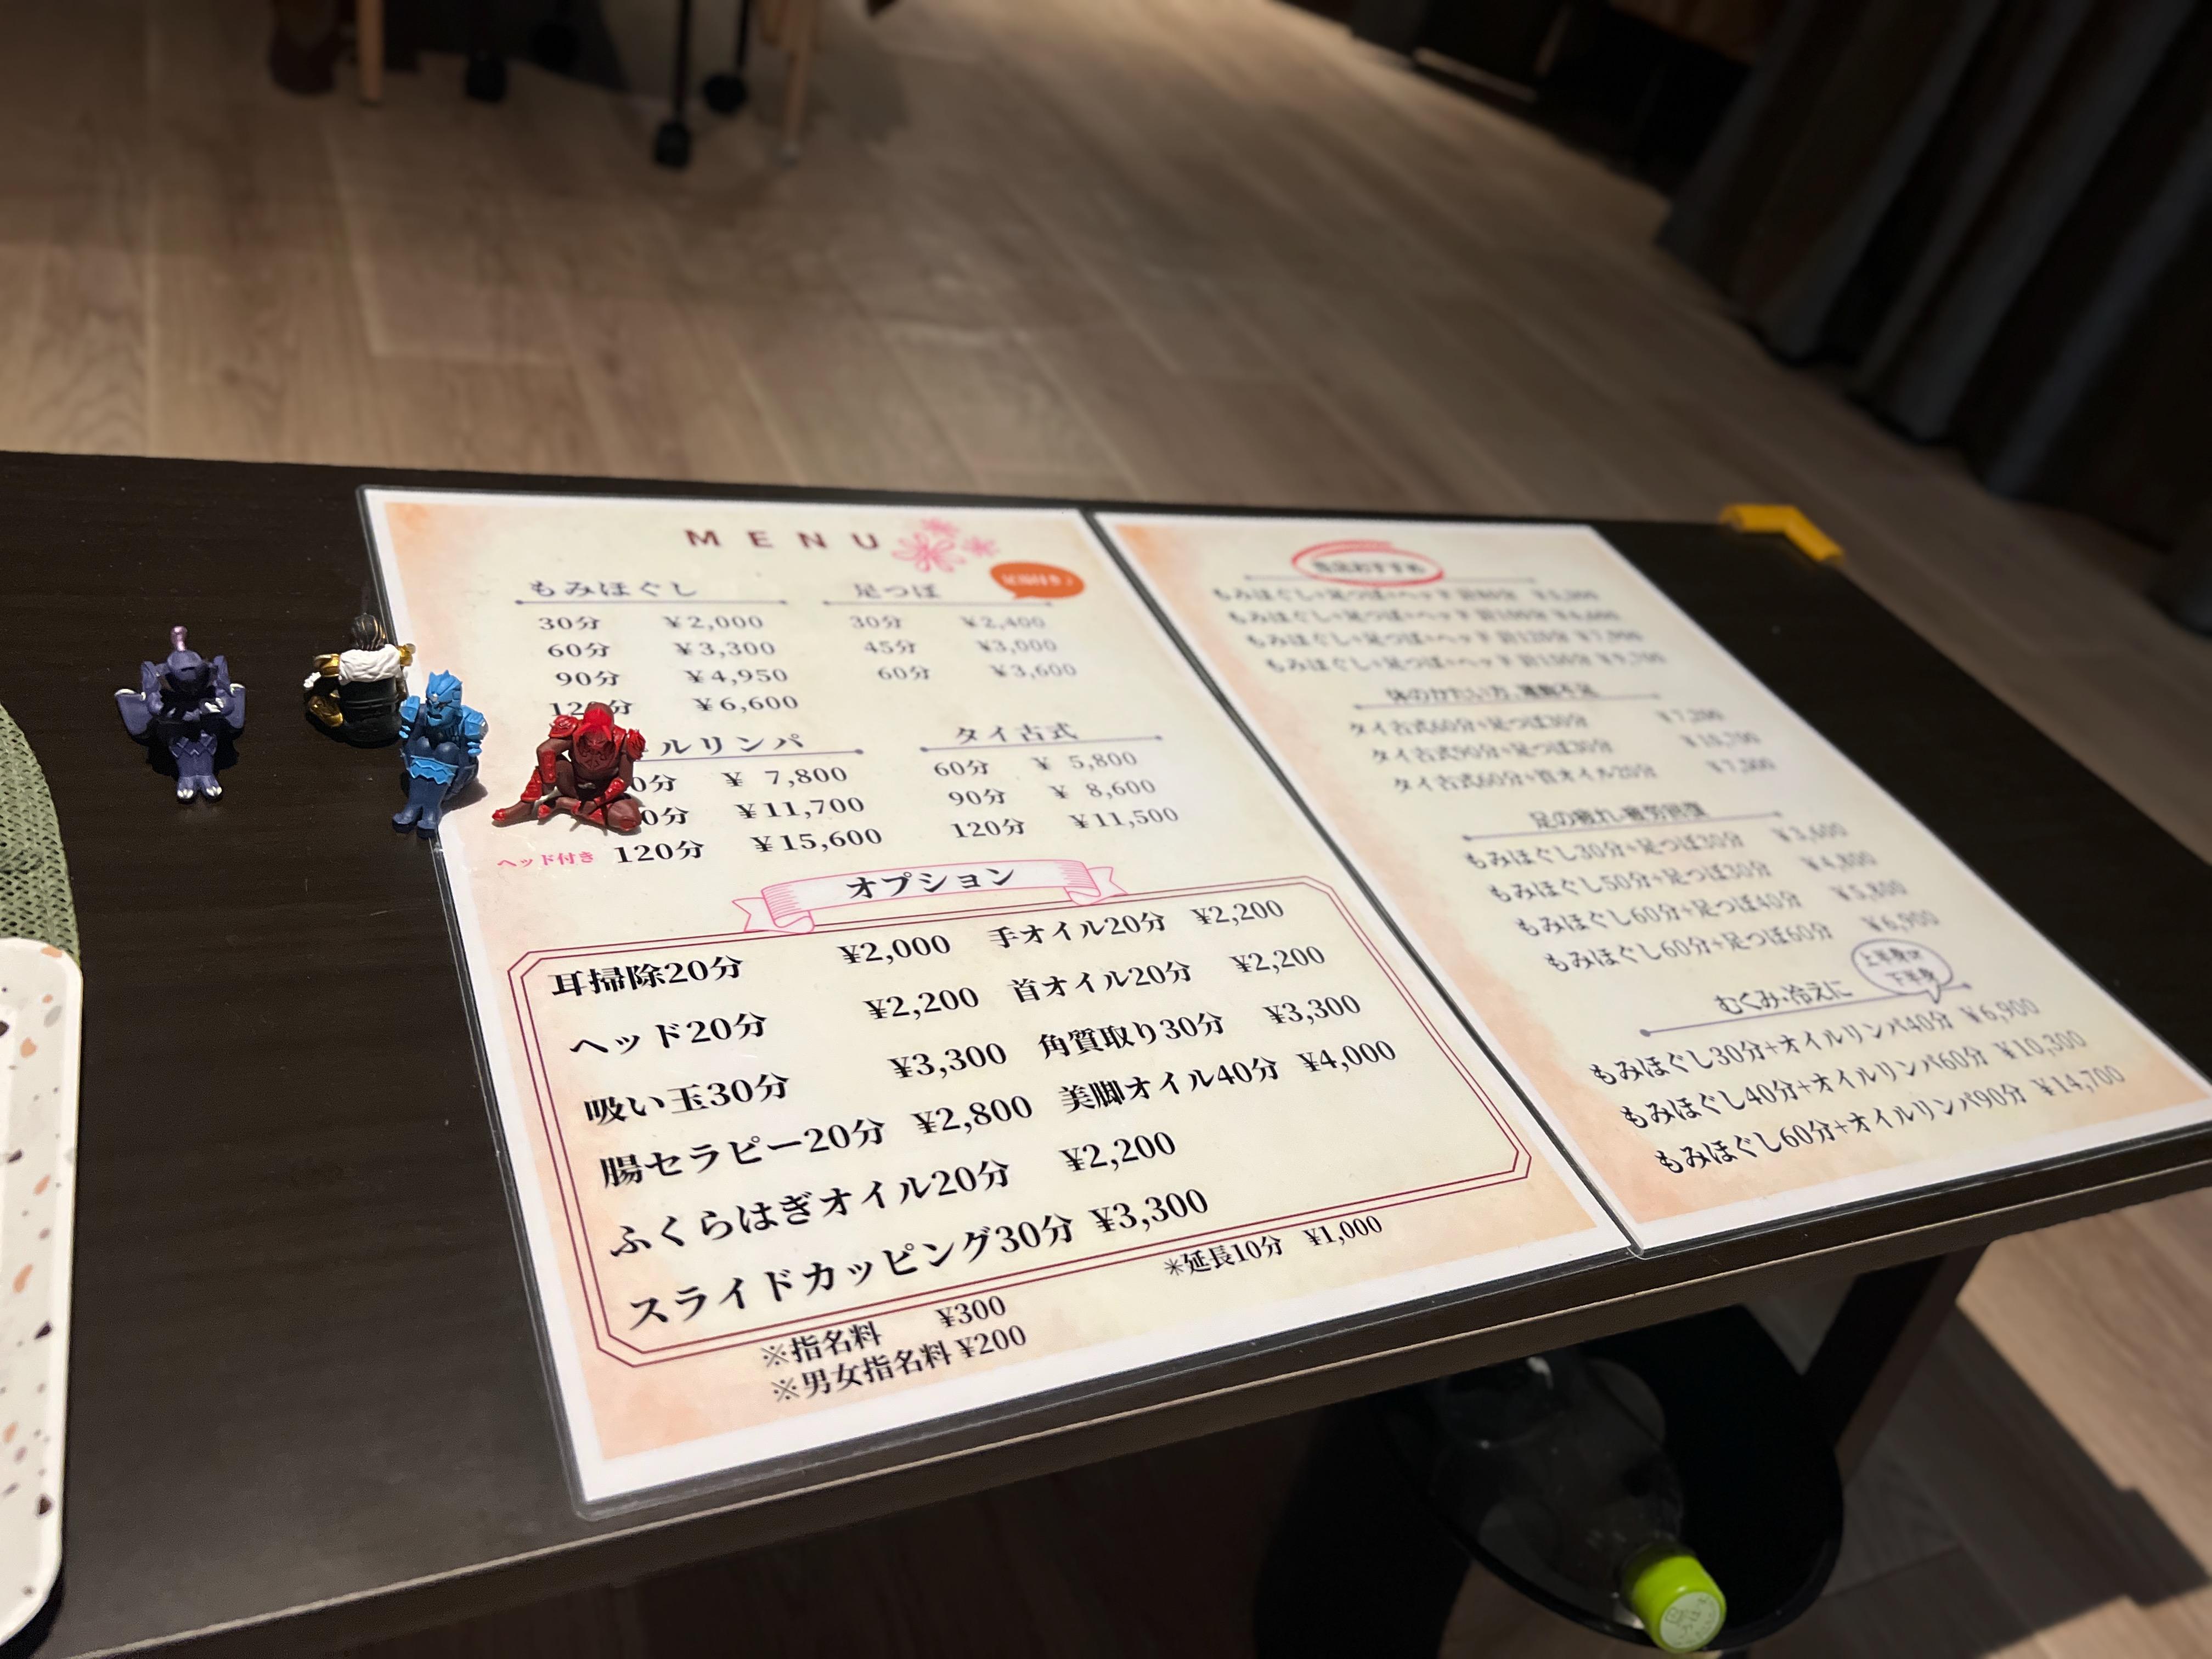 MENU
もみほぐし
30分 ¥2,000
60分 ¥3,300
90分 ¥4,950
120分 ¥6,600
足つぼ
30分 ¥2,400
45分 ¥3,000
60分 ¥3,600
ルリンパ
0分 ¥ 7,800
0分 ¥11,700
ヘッド付き 120分 ¥15,600
タイ古式
60分 ¥ 5,800
90分 ¥ 8,600
120分 ¥11,500
オプション
耳掃除20分 ¥2,000 手オイル20分 ¥2,200
ヘッド20分 ¥2,200 首オイル20分 ¥2,200
吸い玉30分 ¥3,300 角質取り30分 ¥3,300
腸セラピー20分 ¥2,800 美脚オイル40分 ¥4,000
ふくらはぎオイル20分 ¥2,200
スライドカッピング30分 ¥3,300
*延長10分 ¥1,000
※指名料 ¥300
※男女指名料 ¥200
もみほぐし+足つぼ+ヘッド
もみほぐし+足つぼ+ヘッド
もみほぐし+足つぼ+ヘッド
もみほぐし+足つぼ+ヘッド
体のかたい方、運動不足
タイ古式60分+足つぼ30分 ¥7,200
タイ古式90分+足つぼ30分
タイ古式60分+首オイル20分
足の疲れ・疲労回復
もみほぐし30分+足つぼ30分 ¥3,600
もみほぐし50分+足つぼ30分 ¥4,800
もみほぐし60分+足つぼ40分 ¥5,800
もみほぐし60分+足つぼ60分 ¥6,900
むくみ・冷えに
上半身or
下半身
もみほぐし30分+オイルリンパ40分 ¥6,900
もみほぐし40分+オイルリンパ60分 ¥10,300
もみほぐし60分+オイルリンパ90分 ¥14,700